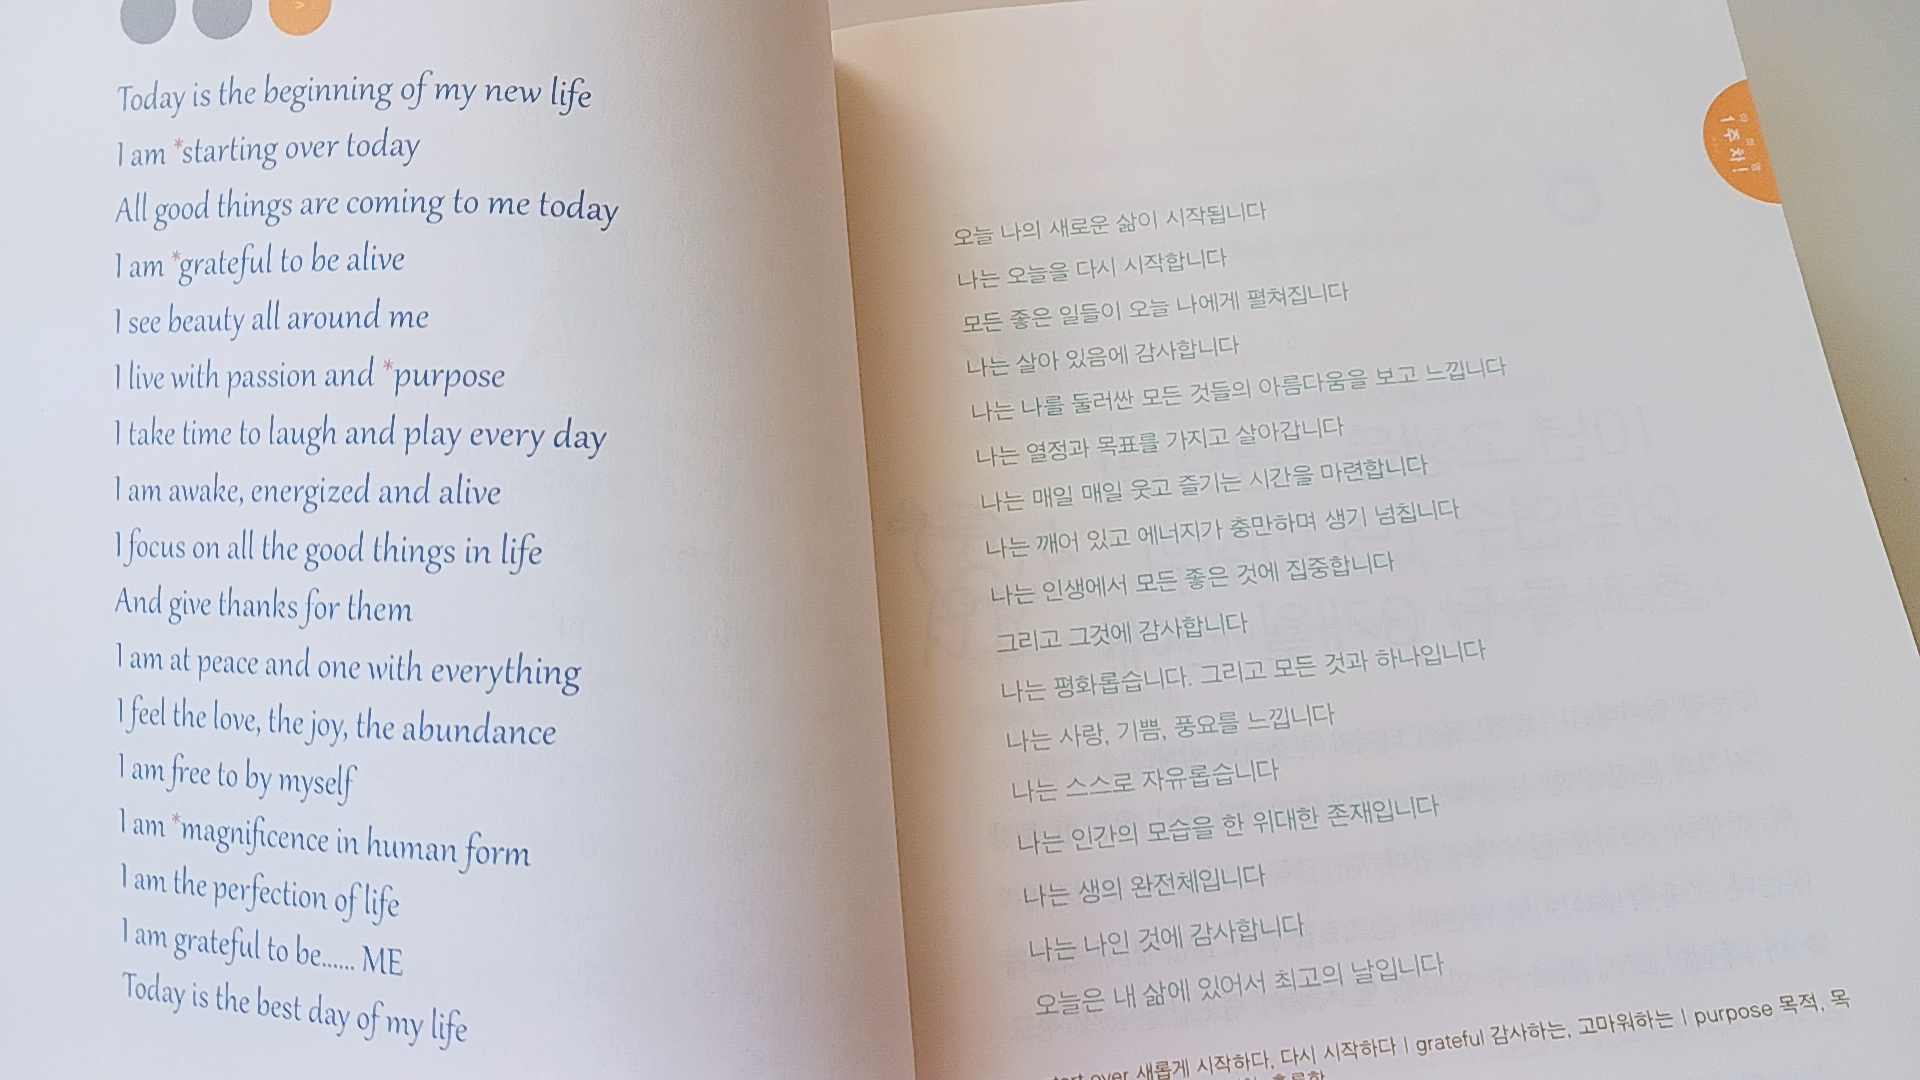 Today is the beginning of my new life
I am *starting over today
All good things are coming to me today
I am *grateful to be alive
I see beauty all around me
I live with passion and *purpose
I take time to laugh and play every day
I am awake, energized and alive
I focus on all the good things in life
And give thanks for them
I am at peace and one with everything
I feel the love, the joy, the abundance
I am free to by myself
I am *magnificence in human form
I am the perfection of life
I am grateful to be...... ME
Today is the best day of my life
1주차!
오늘 나의 새로운 삶이 시작됩니다
나는 오늘을 다시 시작합니다
모든 좋은 일들이 오늘 나에게 펼쳐집니다
나는 살아 있음에 감사합니다
나는 나를 둘러싼 모든 것들의 아름다움을 보고 느낍니다
나는 열정과 목표를 가지고 살아갑니다
나는 매일 매일 웃고 즐기는 시간을 마련합니다
나는 깨어 있고 에너지가 충만하며 생기 넘칩니다
나는 인생에서 모든 좋은 것에 집중합니다
그리고 그것에 감사합니다
나는 평화롭습니다. 그리고 모든 것과 하나입니다
나는 사랑, 기쁨, 풍요를 느낍니다
나는 스스로 자유롭습니다
나는 인간의 모습을 한 위대한 존재입니다
나는 생의 완전체입니다
나는 나인 것에 감사합니다
오늘은 내 삶에 있어서 최고의 날입니다
over 새롭게 시작하다, 다시 시작하다 | grateful 감사하는, 고마워하는 | purpose 목적, 목